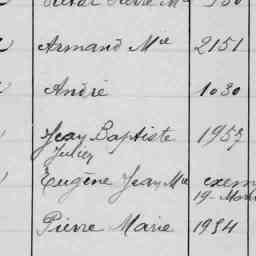 Armand Mie 2151
André 1030
Jean Baptiste 1957
Julien
Eugène Jean Mie exem
19
Pierre Marie 1934